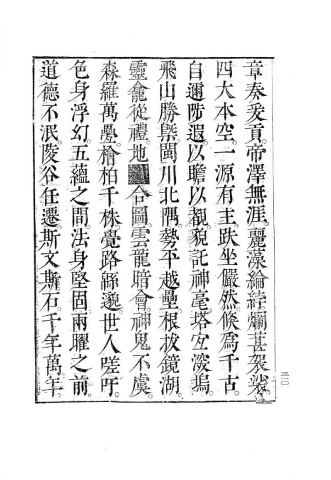 章奏爰貢。帝澤無涯。麗藻綸綍。爛甚袈裟。
四大本空。一源有主。趺坐儼然。倏爲千古。
自邇陟遐。以瞻以覩。貌託神毫。塔宏浚塢。
飛山勝槩。閩川北隅。勢平越壘。根拔鏡湖。
靈龕從禮。地合圖。雲龍暗會。神鬼不虞。
森羅萬壑。檜柏千株。覺路緜邈。世人嗟吁。
色身浮幻。五蘊之間。法身堅固。兩曜之前。
道德不泯。陵谷任遷。斯文斯石。千年萬年。